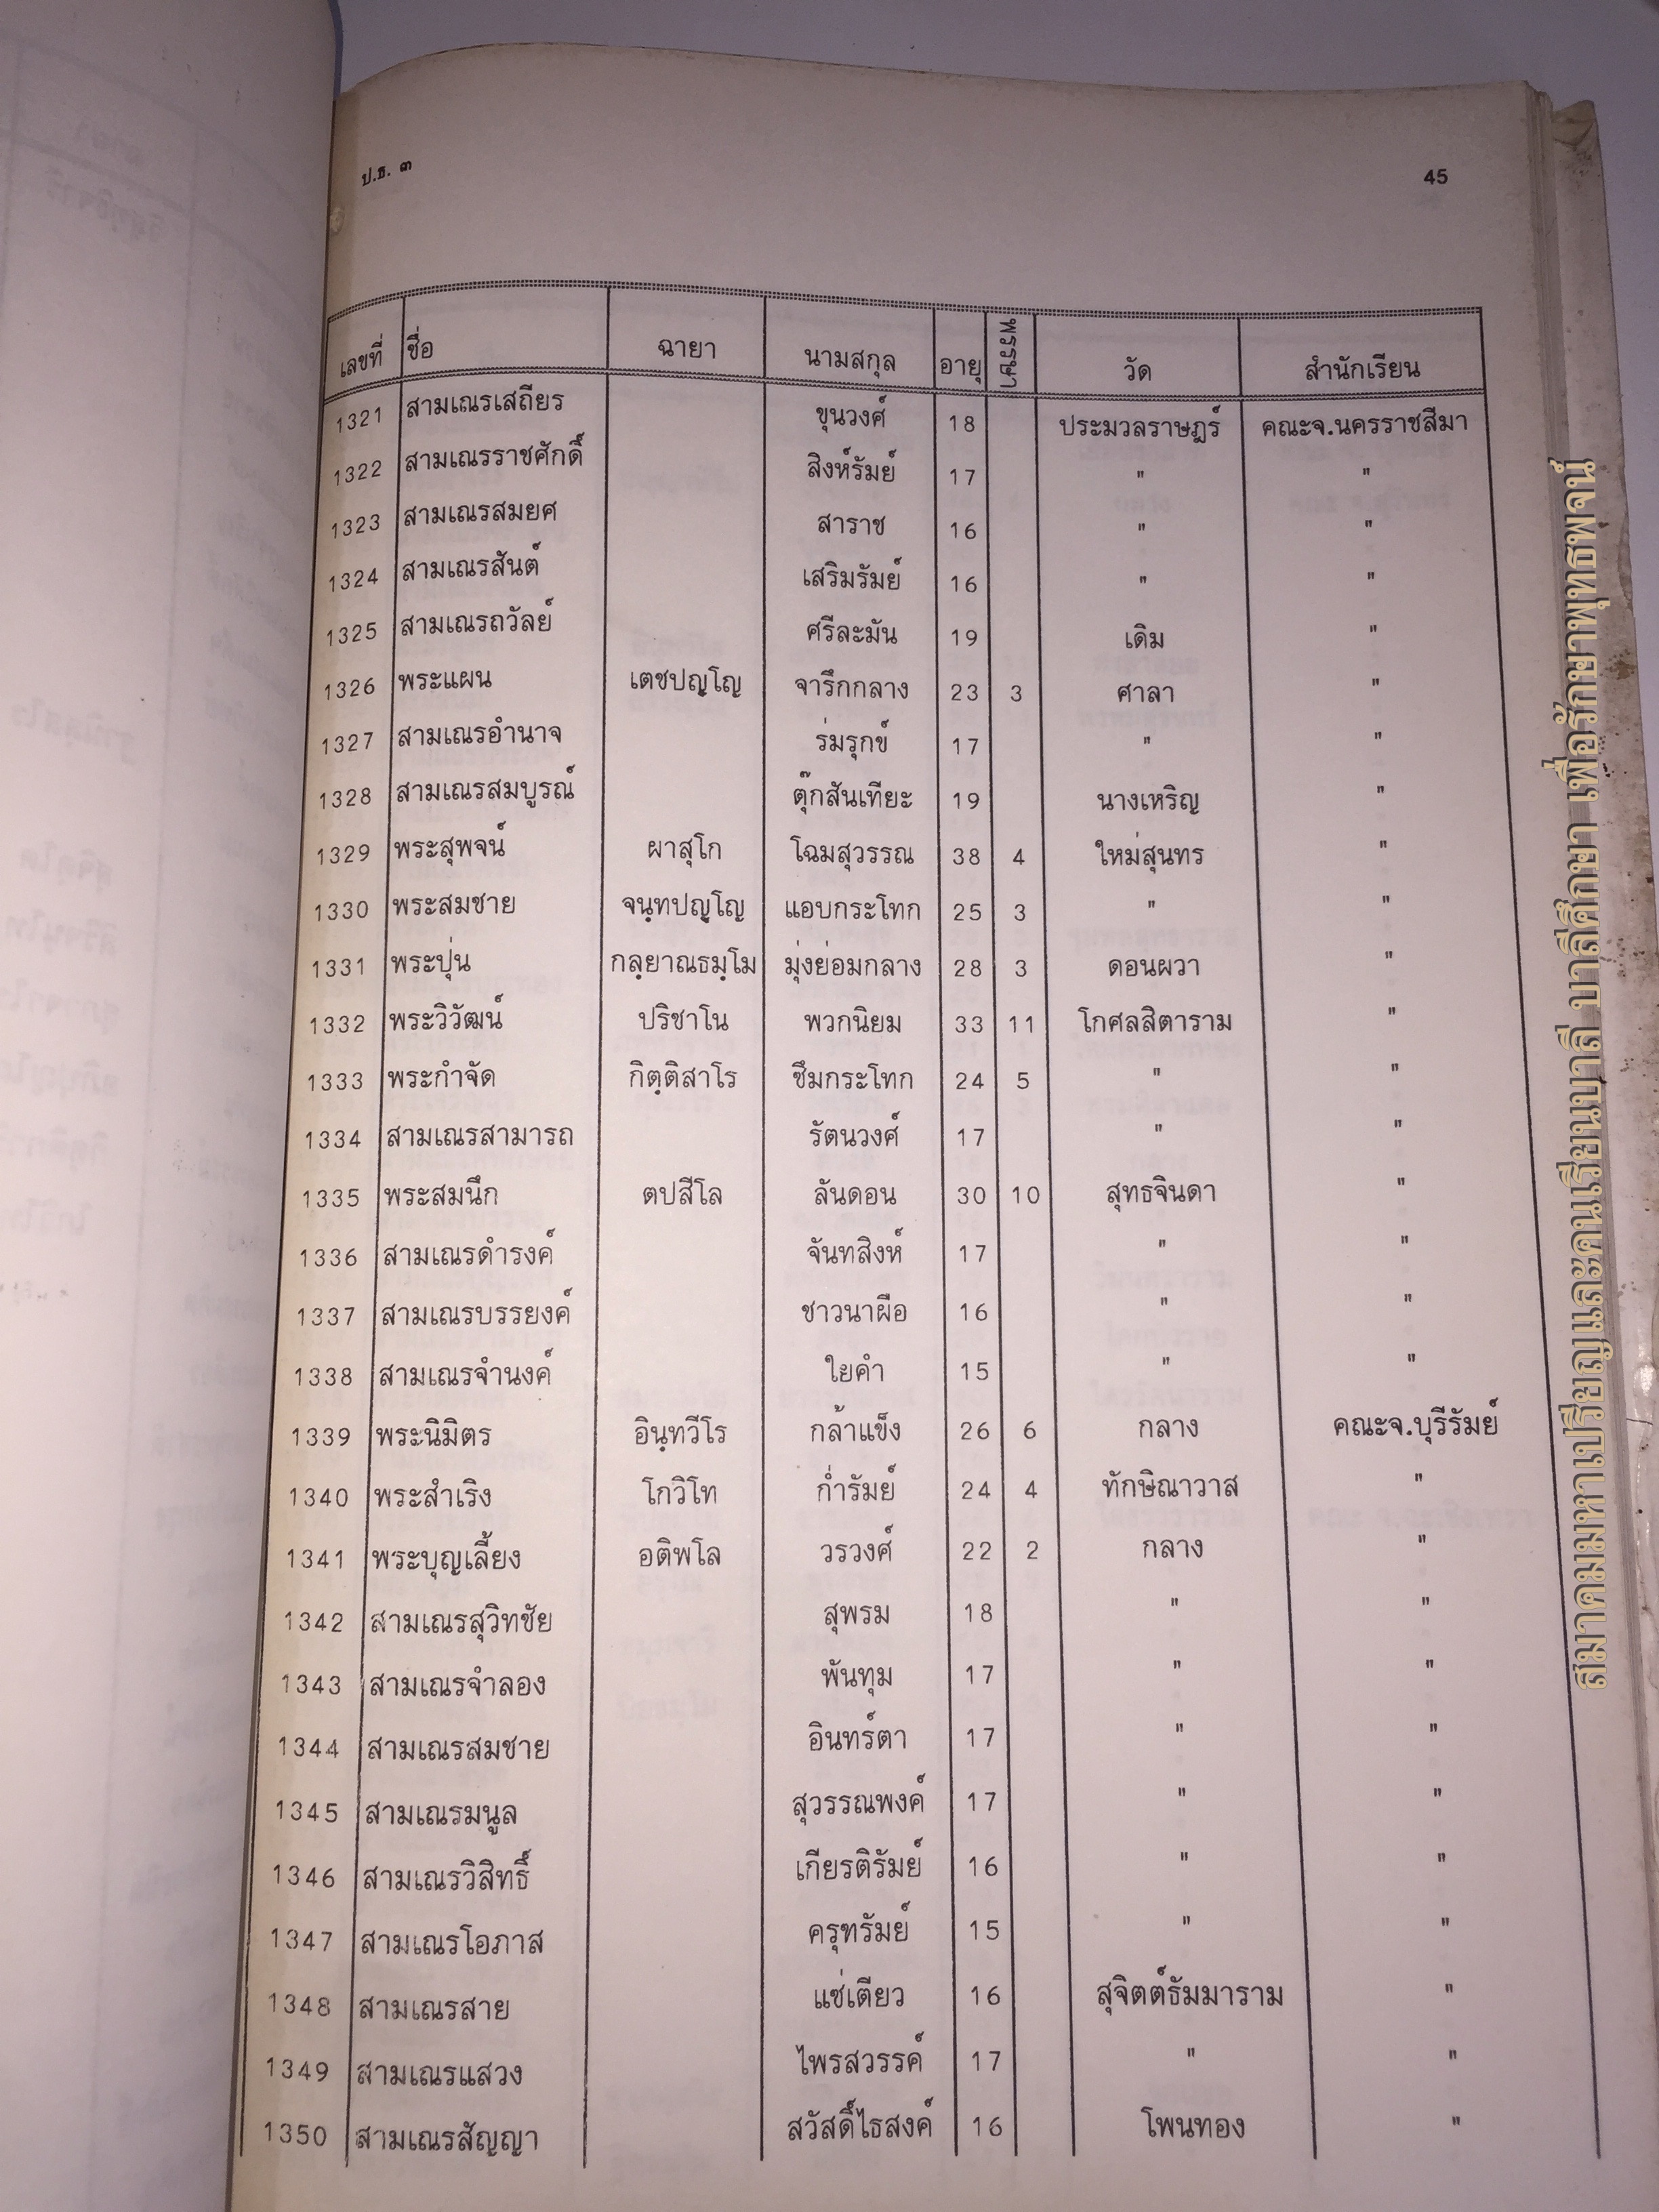 ป.ธ. ๓ 45
เลขที่ ชื่อ ฉายา นามสกุล อายุ พรรษา วัด สำนักเรียน
1321 สามเณรเสถียร ขุนวงศ์ 18 ประมวลราษฎร์ คณะจ.นครราชสีมา
1322 สามเณรราชศักดิ์ สิงห์รัมย์ 17 " "
1323 สามเณรสมยศ สาราช 16 " "
1324 สามเณรสันต์ เสริมรัมย์ 16 " "
1325 สามเณรถวัลย์ ศรีละมัน 19 เดิม "
1326 พระแผน เตชปญฺโญ จารึกกลาง 23 3 ศาลา "
1327 สามเณรอำนาจ ร่มรุกข์ 17 " "
1328 สามเณรสมบูรณ์ ตุ๊กสันเทียะ 19 นางเหริญ "
1329 พระสุพจน์ ผาสุโก โฉมสุวรรณ 38 4 ใหม่สุนทร "
1330 พระสมชาย จนฺทปญฺโญ แอบกระโทก 25 3 " "
1331 พระปุ่น กลฺยาณธมฺโม มุ่งย่อมกลาง 28 3 ดอนผวา "
1332 พระวิวัฒน์ ปริชาโน พวกนิยม 33 11 โกศลสิตาราม "
1333 พระกำจัด กิตฺติสาโร ซึมกระโทก 24 5 " "
1334 สามเณรสามารถ รัตนวงศ์ 17 " "
1335 พระสมนึก ตปสีโล ลันดอน 30 10 สุทธจินดา "
1336 สามเณรดำรงค์ จันทสิงห์ 17 " "
1337 สามเณรบรรยงค์ ชาวนาผือ 16 " "
1338 สามเณรจำนงค์ ใยคำ 15 " "
1339 พระนิมิตร อินฺทวีโร กล้าแข็ง 26 6 กลาง คณะจ.บุรีรัมย์
1340 พระสำเริง โกวิโท ก่ำรัมย์ 24 4 ทักษิณาวาส "
1341 พระบุญเลี้ยง อติพโล วรวงศ์ 22 2 กลาง "
1342 สามเณรสุวิทชัย สุพรม 18 " "
1343 สามเณรจำลอง พันทุม 17 " "
1344 สามเณรสมชาย อินทร์ตา 17 " "
1345 สามเณรมนูล สุวรรณพงค์ 17 " "
1346 สามเณรวิสิทธิ์ เกียรติรัมย์ 16 " "
1347 สามเณรโอภาส ครุฑรัมย์ 15 " "
1348 สามเณรสาย แซ่เตียว 16 สุจิตต์ธัมมาราม "
1349 สามเณรแสวง ไพรสวรรค์ 17 " "
1350 สามเณรสัญญา สวัสดิ์ไธสงค์ 16 โพนทอง "
สมาคมมหาเปรียญและคนเรียนบาลี บาลีศึกษา เพื่อรักษาพุทธพจน์